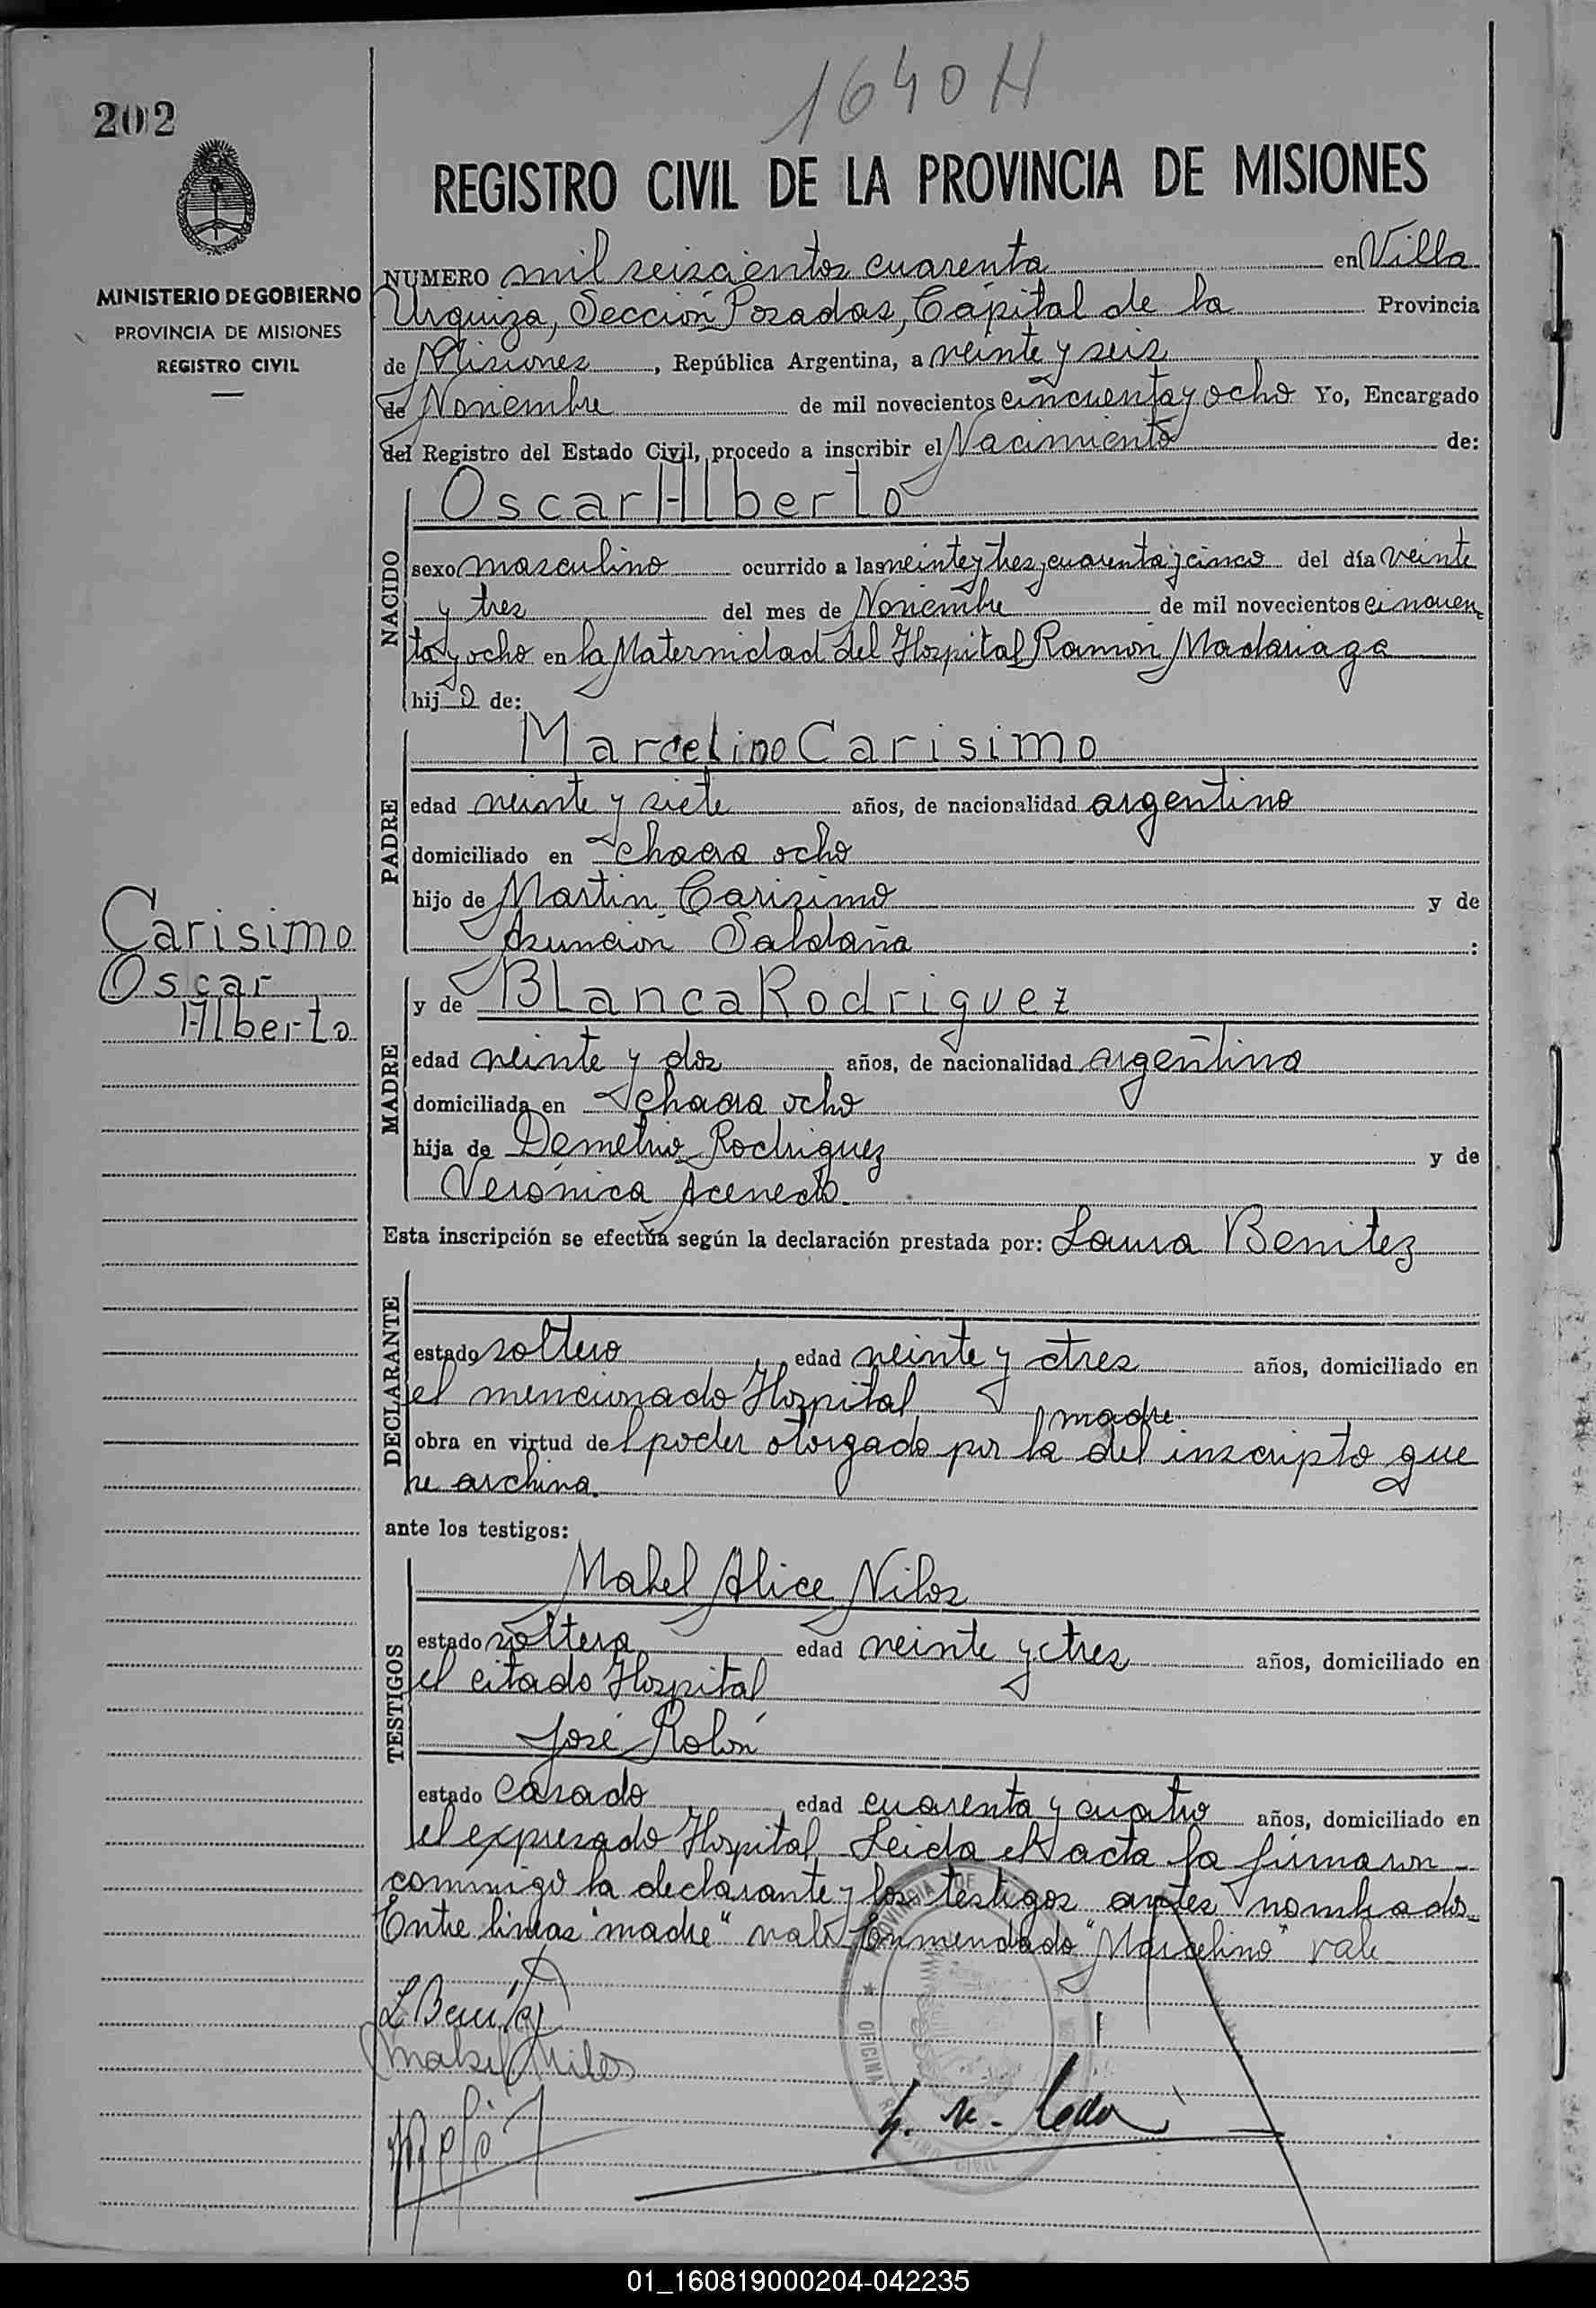 1640 H
202
REGISTRO CIVIL DE LA PROVINCIA DE MISIONES
MINISTERIO DE GOBIERNO
PROVINCIA DE MISIONES
REGISTRO CIVIL
NUMERO mil seiscientos cuarenta en Villa
Urquiza, Sección Posadas, Capital de la Provincia
de Misiones, República Argentina, a veinte y seis
de Noviembre de mil novecientos cincuenta y ocho Yo, Encargado
del Registro del Estado Civil, procedo a inscribir el Nacimiento de:
NACIDO
Oscar Alberto
sexo masculino ocurrido a las veinte y tres, cuarenta y cinco del día veinte
y tres del mes de Noviembre de mil novecientos cincuen
ta y ocho en la Maternidad del Hospital Ramón Madariaga
hijo de:
PADRE
Marcelino Carisimo
edad veinte y siete años, de nacionalidad argentino
domiciliado en chacra ocho
hijo de Martin Carisimo y de
Asunción Saldaña :
Carisimo
Oscar
Alberto
MADRE
y de Blanca Rodriguez
edad veinte y dos años, de nacionalidad argentina
domiciliada en chacra ocho
hija de Demetrio Rodriguez y de
Verónica Acevedo
Esta inscripción se efectúa según la declaración prestada por: Laura Benitez
DECLARANTE
estado soltero edad veinte y tres años, domiciliado en
el mencionado Hospital
madre
obra en virtud del poder otorgado por la del inscripto que
se archiva.
ante los testigos:
TESTIGOS
Mabel Alice Nilos
estado soltera edad veinte y tres años, domiciliado en
el citado Hospital
José Rolón
estado casado edad cuarenta y cuatro años, domiciliado en
el expresado Hospital. Leida el acta la firmaron
conmigo la declarante y los testigos antes nombados
Entre lineas "madre" vale Enmendado "Marcelino" vale
PROVINCIA DE
OFICINA REGISTRO CIVIL
L Benitez
Mabel Nilos
01_160819000204-042235